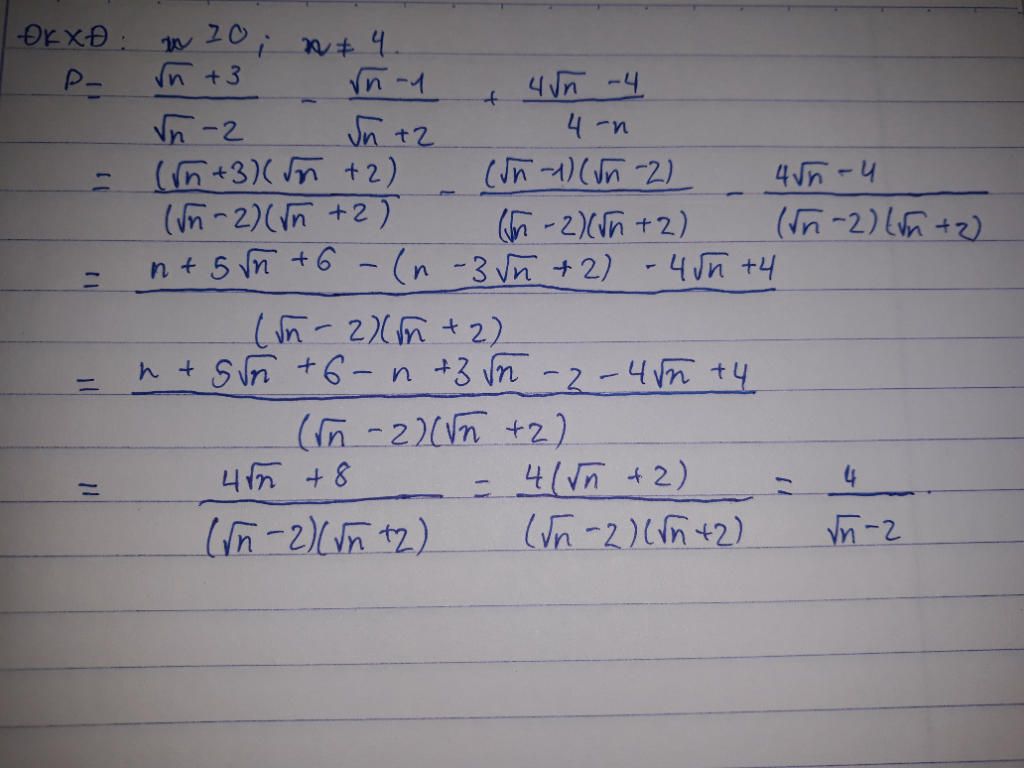 ĐKXĐ: n ≥ 0; n ≠ 4.
P = (√n + 3)/(√n - 2) - (√n - 1)/(√n + 2) + (4√n - 4)/(4 - n)
= ((√n + 3)(√n + 2))/((√n - 2)(√n + 2)) - ((√n - 1)(√n - 2))/((√n - 2)(√n + 2)) - (4√n - 4)/((√n - 2)(√n + 2))
= (n + 5√n + 6 - (n - 3√n + 2) - 4√n + 4)/((√n - 2)(√n + 2))
= (n + 5√n + 6 - n + 3√n - 2 - 4√n + 4)/((√n - 2)(√n + 2))
= (4√n + 8)/((√n - 2)(√n + 2)) = (4(√n + 2))/((√n - 2)(√n + 2)) = 4/(√n - 2).